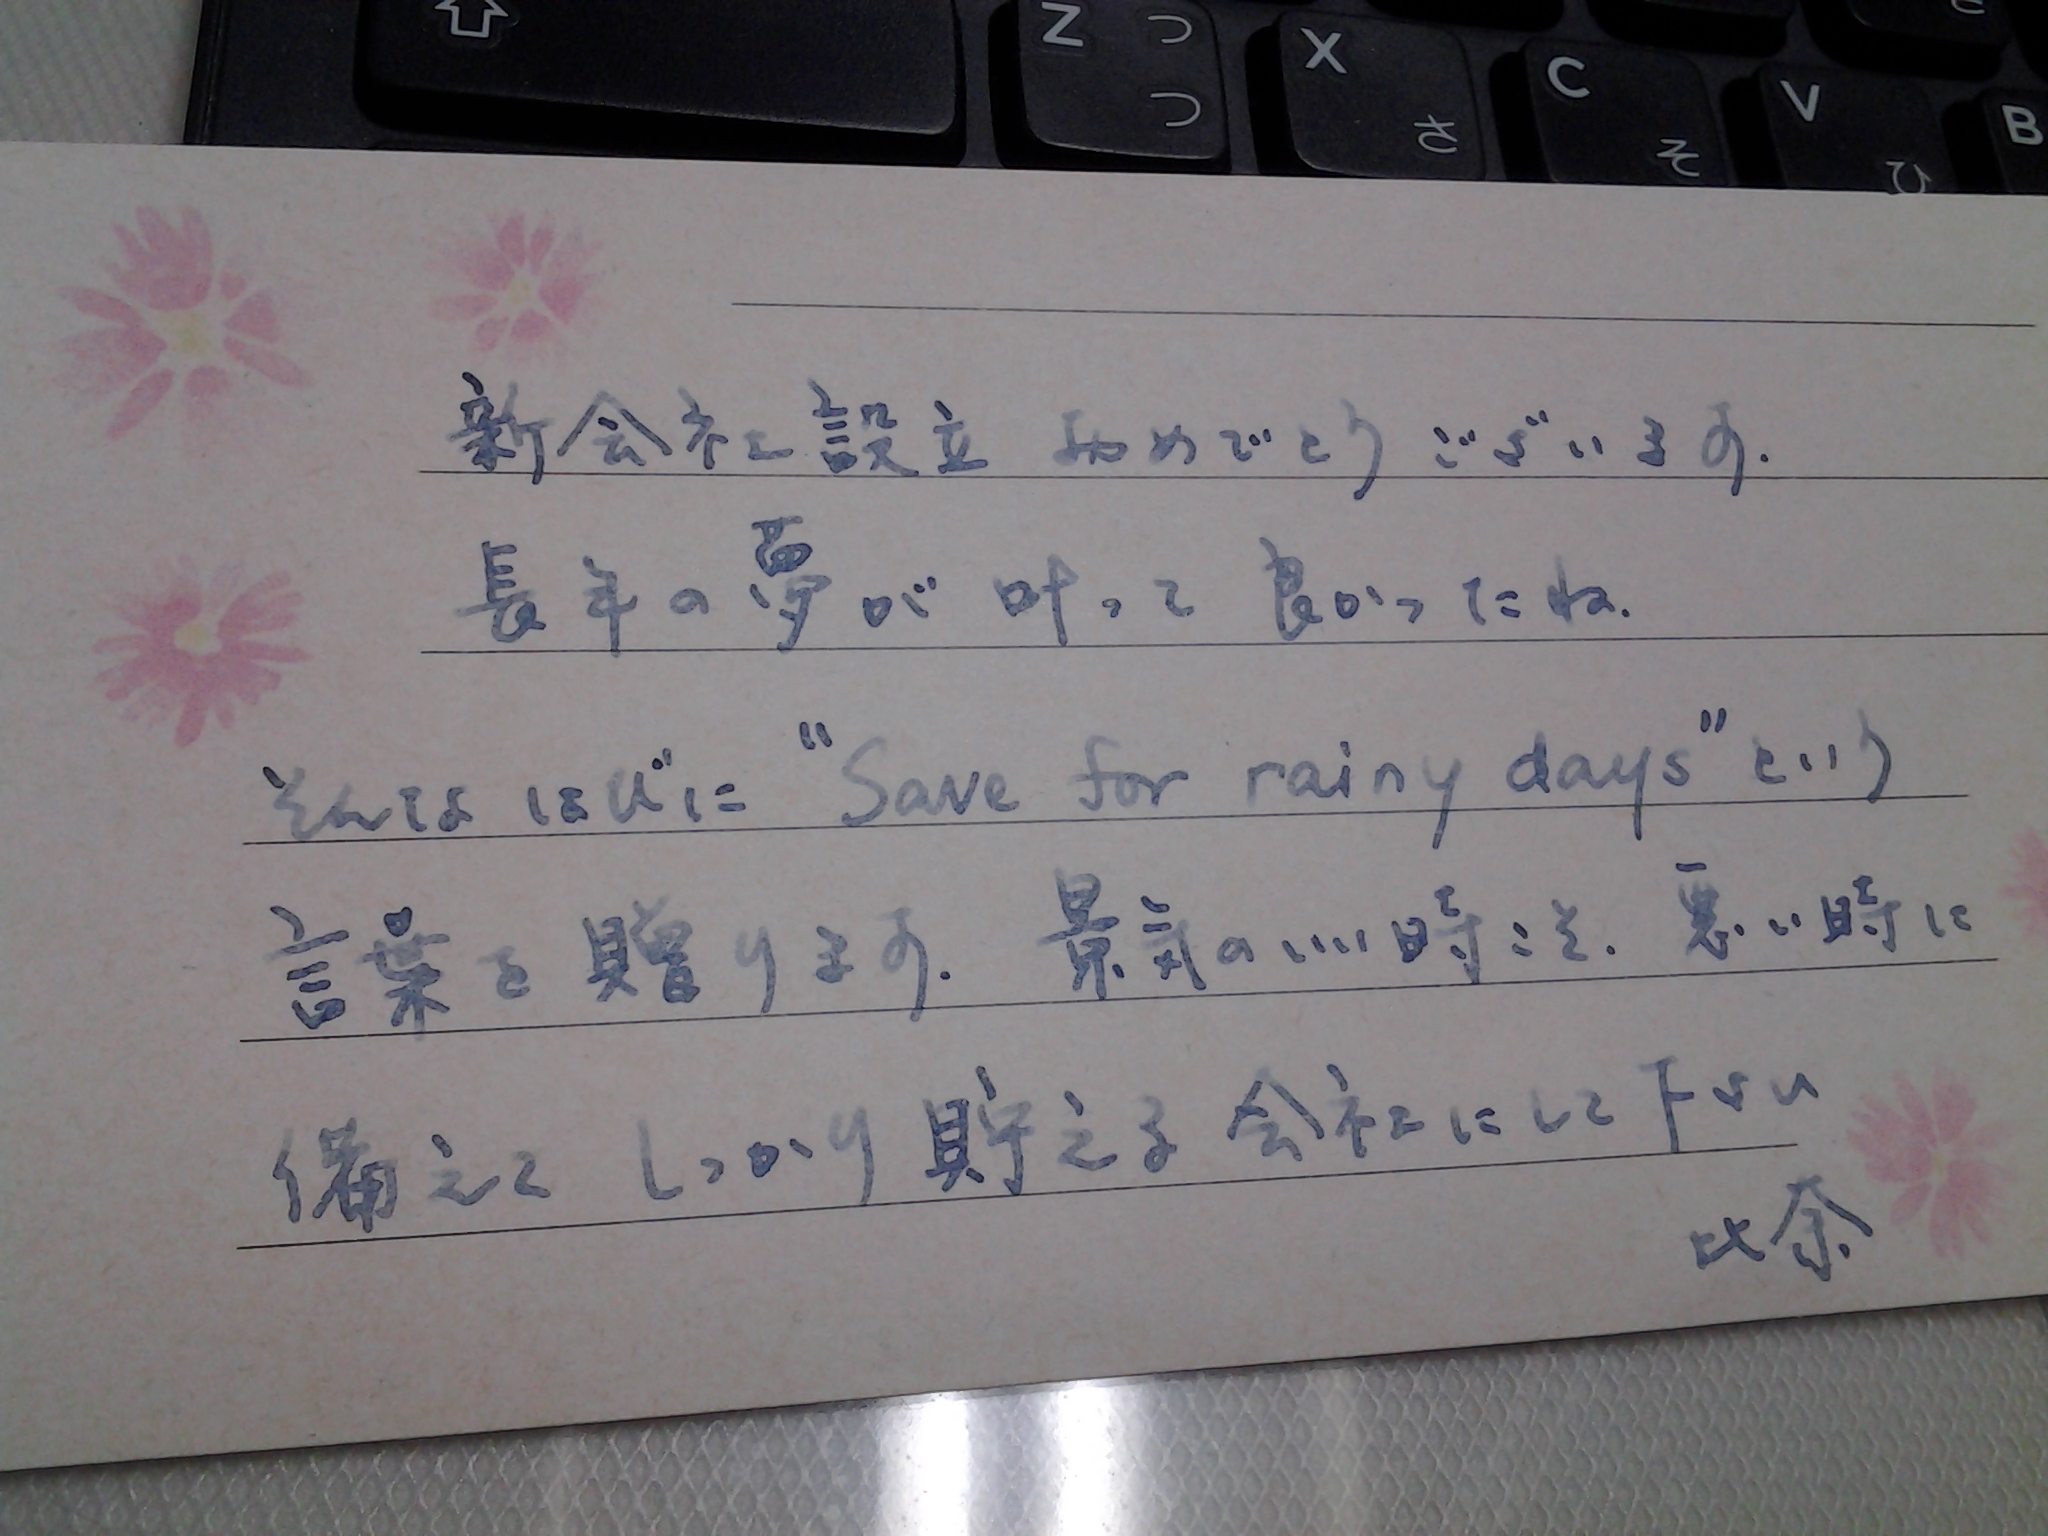 Z っ つ
X さ
C そ
V ひ
B
新会社設立 おめでとうございます.
長年の夢が 叶って 良かったね.
そんな はびに "Save for rainy days" という
言葉を贈ります. 景気のいい時こそ. 悪い時に
備えて しっかり 貯える 会社にして下さい
比奈